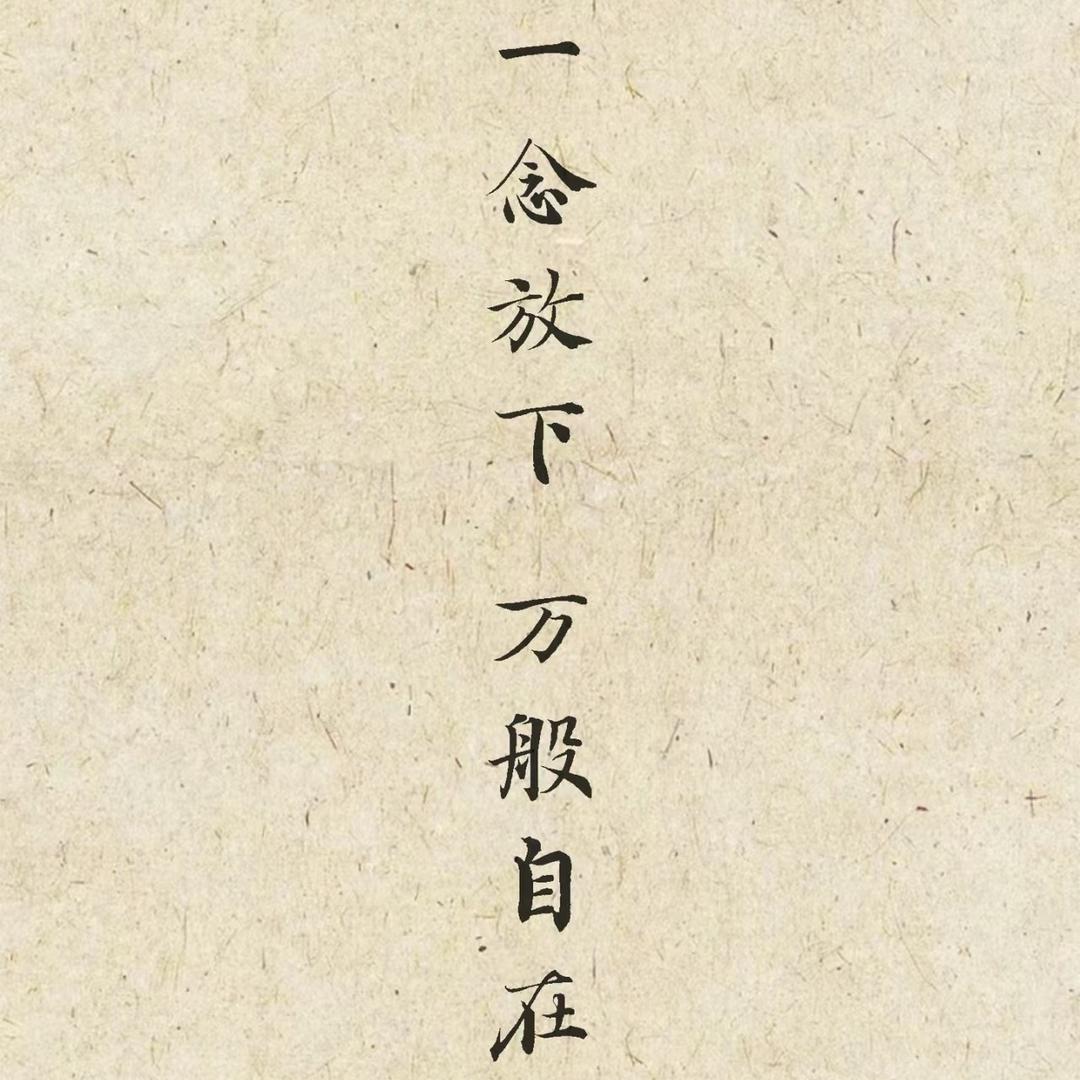 一念放下 万般自在